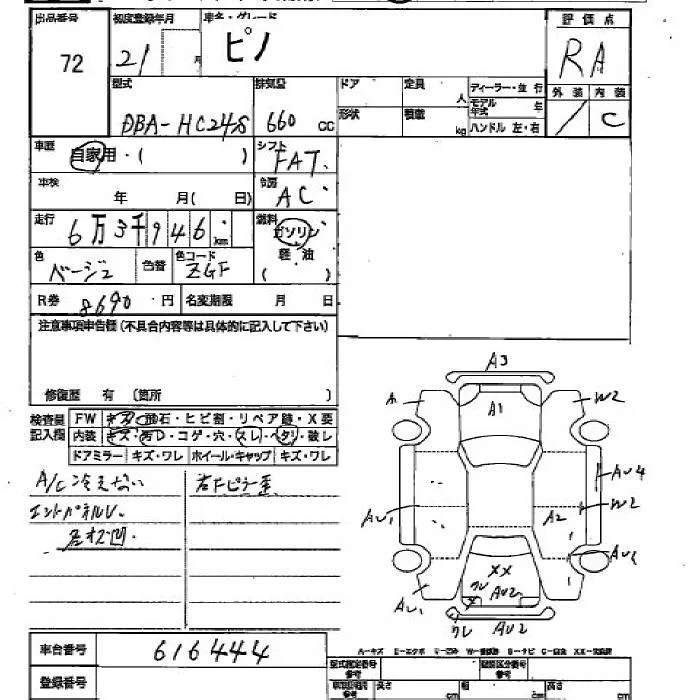 出品番号 初度登録年月 車名・グレード 評価点
72 21 月 ピノ RA
型式 排気量 ドア 定員 人 ディーラー・並行 外装 内装
DBA-HC24S 660 cc 形状 積載 kg モデル年式 年 / C
ハンドル 左・右
車歴 自家用・( ) シフト FAT
車検 年 月( 日) 冷房 AC
走行 6万3千946 km 燃料 ガソリン
色 ベージュ 色替 色コード ZGF 軽油
( )
R券 8690 円 名変期限 月 日
注意事項申告欄(不具合内容等は具体的に記入して下さい)
修復歴 有 (箇所 )
検査員記入欄 FW キズ・飛石・ヒビ割・リペア跡・X要
内装 キズ・汚れ・コゲ・穴・スレ・ヘタリ・破レ
ドアミラー キズ・ワレ ホイール・キャップ キズ・ワレ
A/C冷えない 右Fピラー歪
エンドパネルU
左オズ凹
A3
A A1 W2
AU4
AU1 A2 W2
XX AU2
AU1 ワレ AU2
ワレ AU2
車台番号 616444
A-キズ E-エクボ U-凹み W-補修跡 S-サビ C-腐食 XX-交換済
登録番号 型式指定番号 参考 類別区分番号 参考
参考 長さ cm 幅 cm 高さ cm